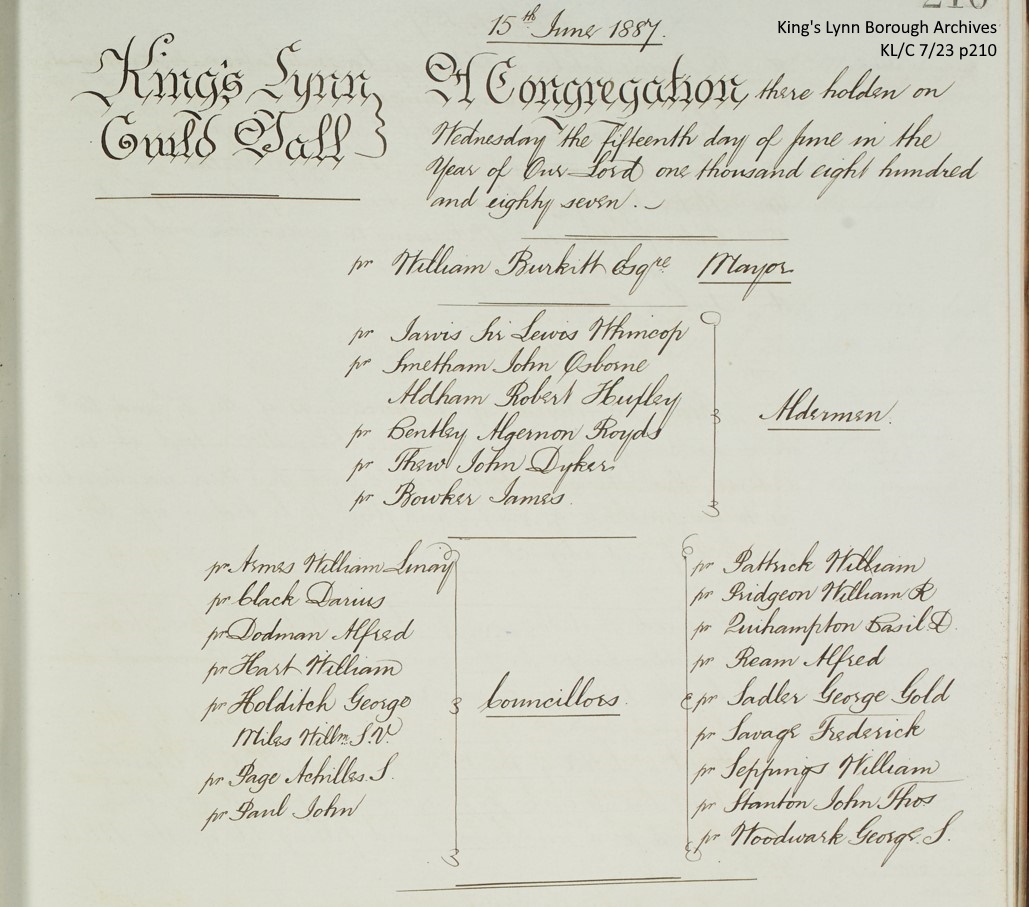 210
15th June 1887.
King's Lynn Borough Archives
KL/C 7/23 p210
King's Lynn
Guild Hall
A Congregation there holden on
Wednesday the fifteenth day of June in the
Year of Our Lord one thousand eight hundred
and eighty seven.
pr William Burkitt Esqre Mayor
pr Jarvis Sir Lewis Whincop
pr Smetham John Osborne
Aldham Robert Hufley
pr Bentley Algernon Royds
pr Thew John Dyker
pr Bowker James.
Aldermen.
pr Armes William Linay
pr Clack Darius
pr Dodman Alfred
pr Hart William
pr Holditch George
Miles Willm. S.V.
pr Page Achilles. S.
pr Paul John
Councillors.
pr Pattrick William
pr Pridgeon William R
pr Quihampton Basil D.
pr Ream Alfred
pr Sadler George Gold
pr Savage Frederick
pr Seppings William
pr Stanton John Thos
pr Woodwark George. S.